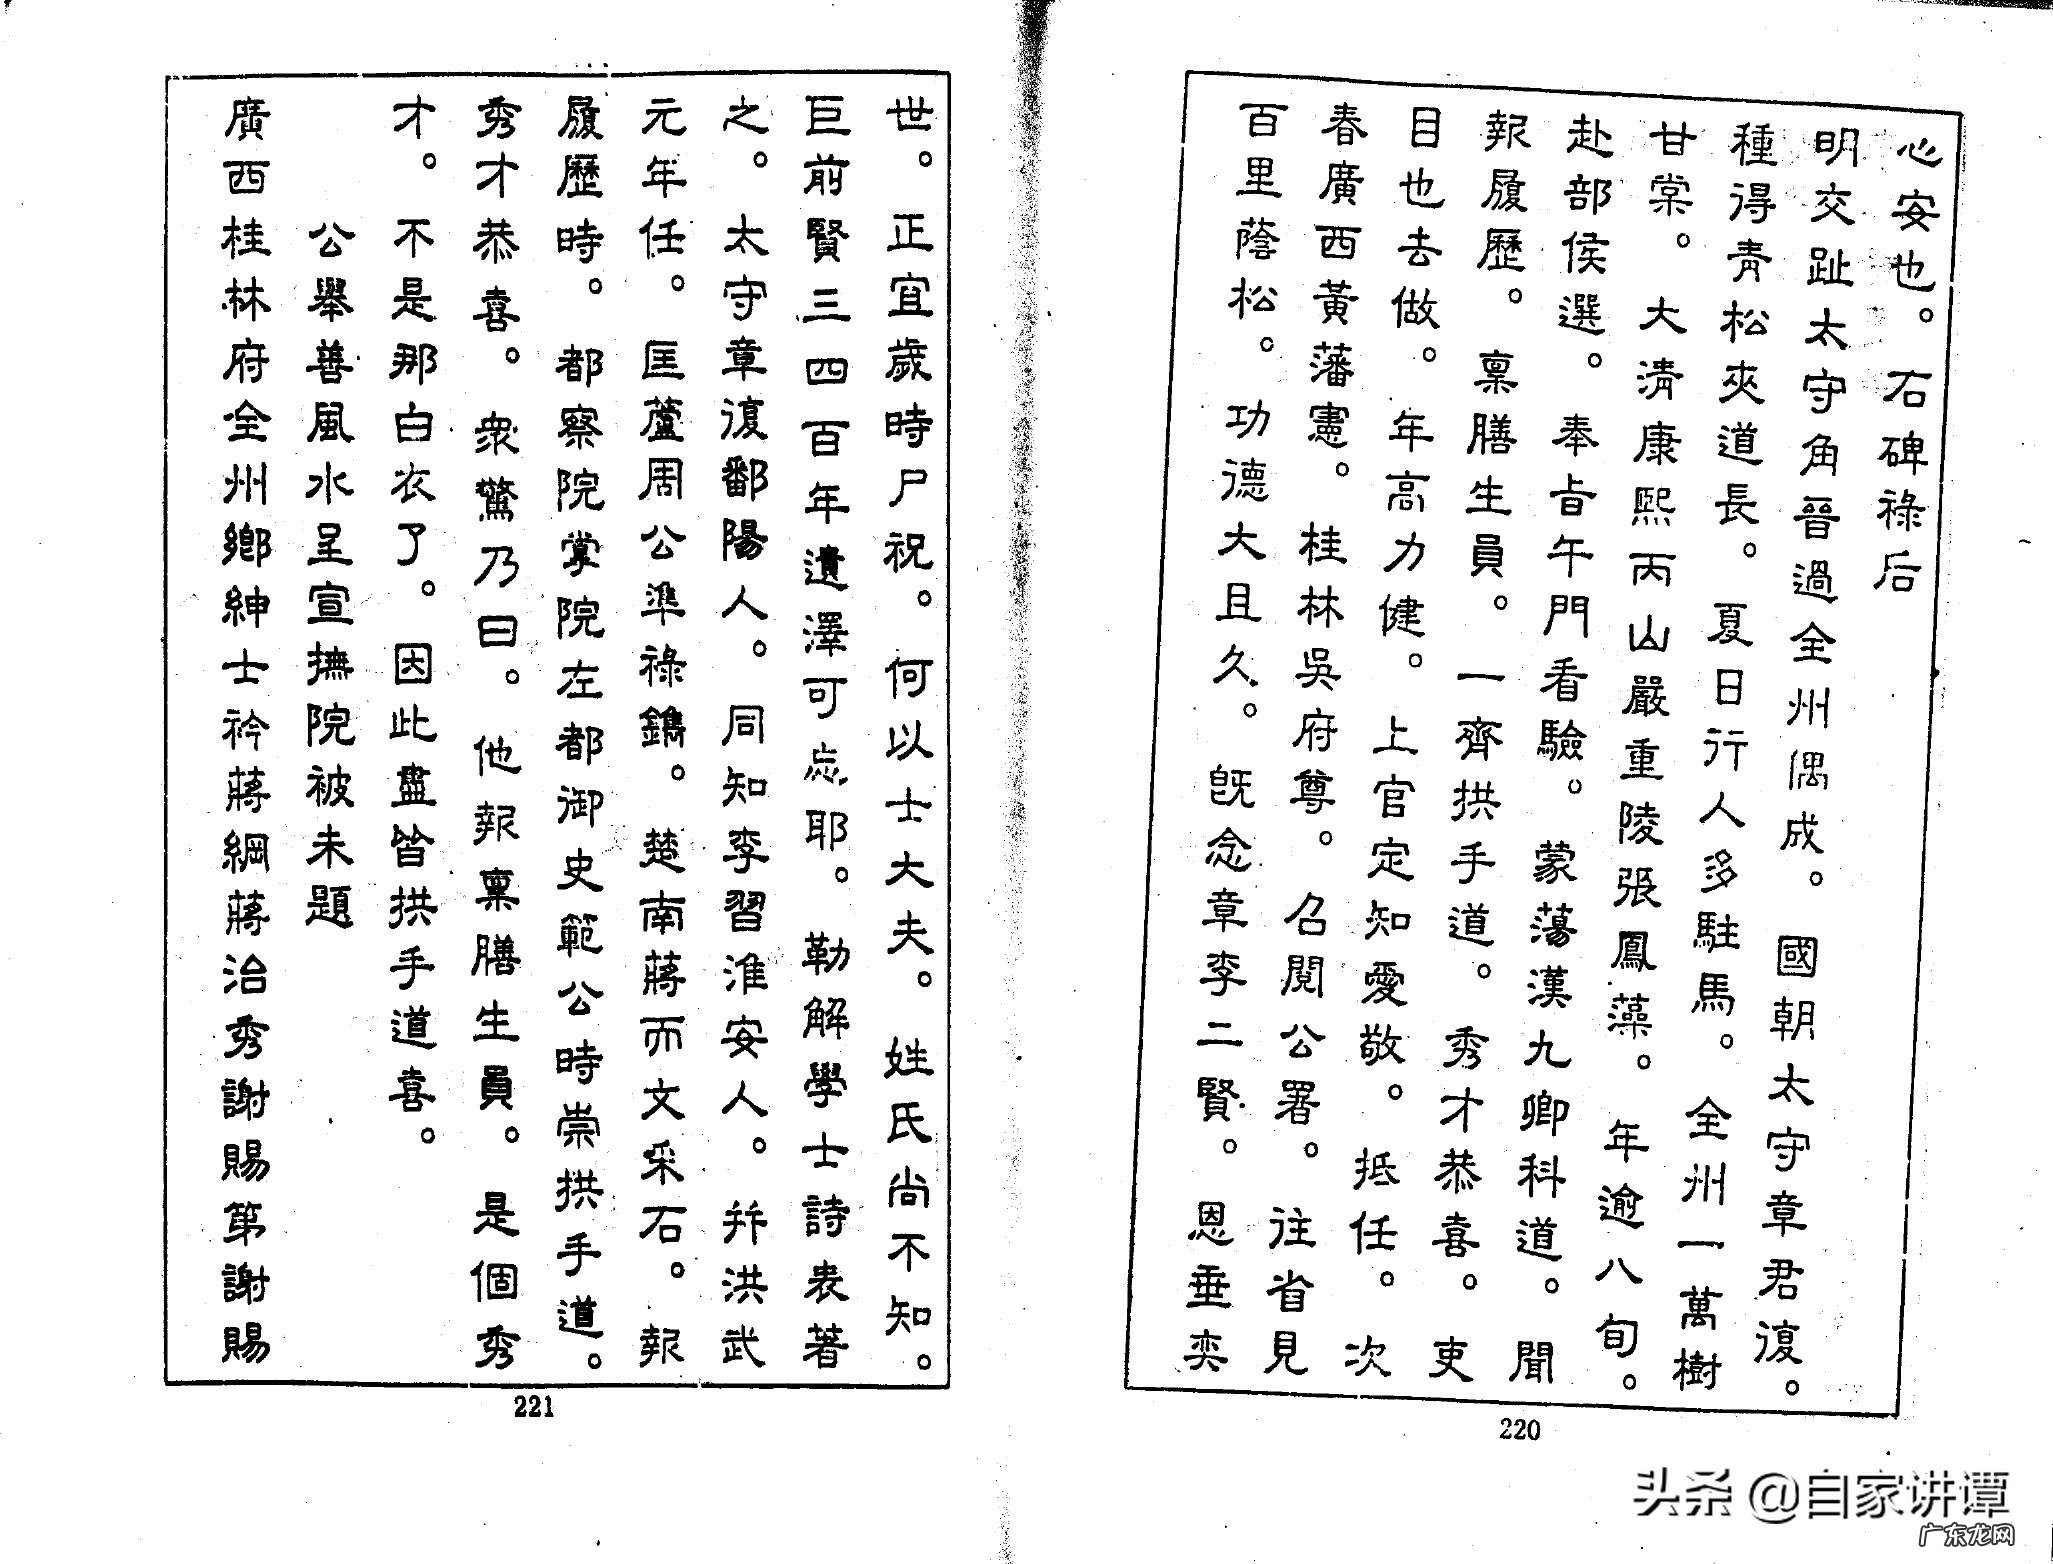 心安也。右碑祿后
明交趾太守角晉過全州偶成。國朝太守章君復。
種得青松夾道長。夏日行人多駐馬。全州一萬樹
甘棠。大清康熙丙山嚴重陵張鳳藻。年逾八旬。
赴部侯選。奉旨午門看驗。蒙蕩漢九卿科道。聞
報履歷。稟膳生員。一齊拱手道。秀才恭喜。吏
目也去做。年高力健。上官定知愛敬。抵任。次
春廣西黃藩憲。桂林吳府尊。召閱公署。往省見
百里蔭松。功德大且久。既念章李二賢。恩垂奕
220
世。正宜歲時尸祝。何以士大夫。姓氏尚不知。
巨前賢三四百年遺澤可忘耶。勒解學士詩表著
之。太守章復鄱陽人。同知李習淮安人。并洪武
元年任。匡蘆周公準祿鐫。楚南蔣而文采石。報
履歷時。都察院掌院左都御史範公時崇拱手道。
秀才恭喜。衆驚乃曰。他報稟膳生員。是個秀
才。不是那白衣了。因此盡皆拱手道喜。
公舉善風水呈宣撫院被未題
廣西桂林府全州鄉紳士衿蔣綱蔣治秀謝賜第謝賜
221
头条 @自家讲谭
广东龙网